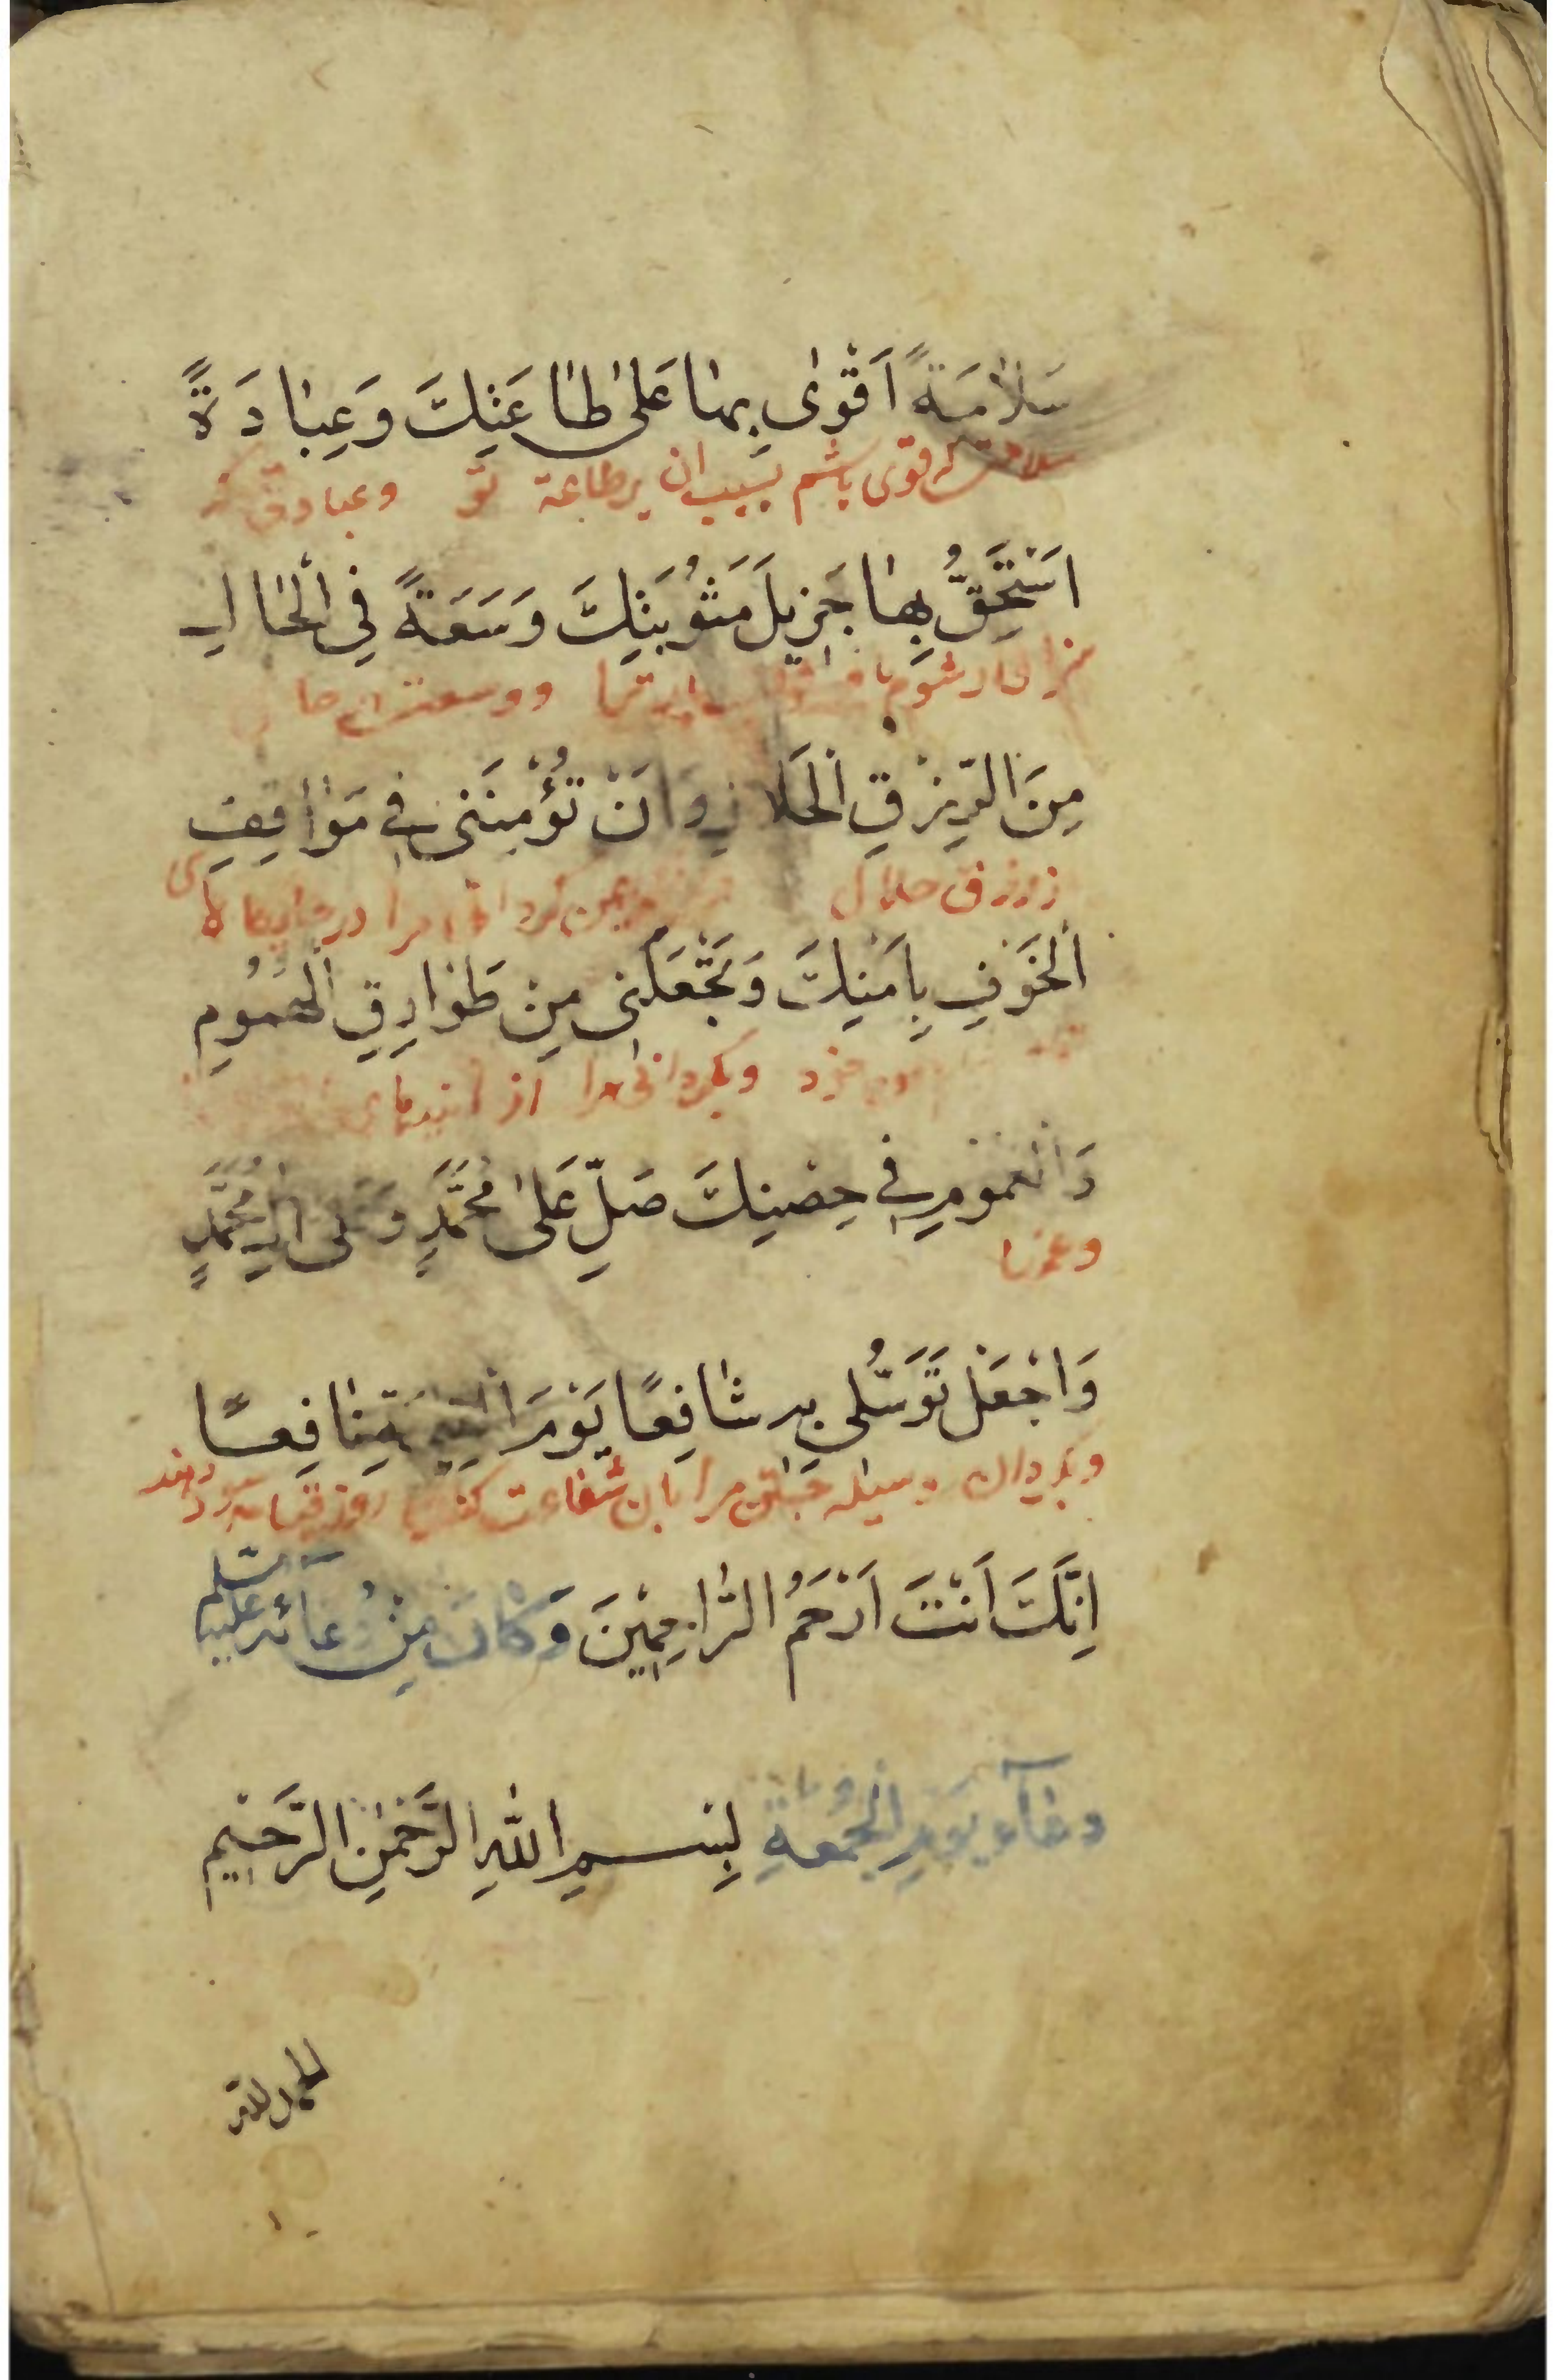 سَلاٰمَةً اَقْوٰى بِهٰا عَلىٰ طٰاعَتِكَ وَعِبٰادَةً
سلامتی که قوی باشم بسبب ان برطاعة تو وعبادتی که
اَسْتَحِقُّ بِهٰا جَزِيلَ مَثُوبَتِكَ وَسَعَةً فِي الْحٰالِ
سزاوار شوم
مِنَ الرِّزْقِ الْحَلاٰلِ وَاَنْ تُؤْمِنَنى فى مَوٰاقِفِ
از رزق حلال مرا در جایگاه های
الْخَوْفِ بِاَمْنِكَ وَتَجْعَلَنى مِنْ طَوٰارِقِ الْهُمُومِ
خود وبگردانی مرا از
وَالْغُمُومِ فى حِصْنِكَ صَلِّ عَلىٰ مُحَمَّدٍ وَعَلىٰ اٰلِ مُحَمَّدٍ
وغمها
وَاجْعَلْ تَوَسُّلى بِهِ شٰافِعًا يَوْمَ الْقِيٰمَةِ نٰافِعًا
وبگردان وسیله جستن مرا بان شفاعت کننده روز قیامت سود دهنده
اِنَّكَ اَنْتَ اَرْحَمُ الرّٰاحِمِيْنَ وَكٰانَ مِنْ دُعٰائِهِ عليه السّلم
دعٰآء يَوْمِ الْجُمُعَةِ بِسْمِ اللّٰهِ الرَّحْمٰنِ الرَّحِيْمِ
الحمد لله